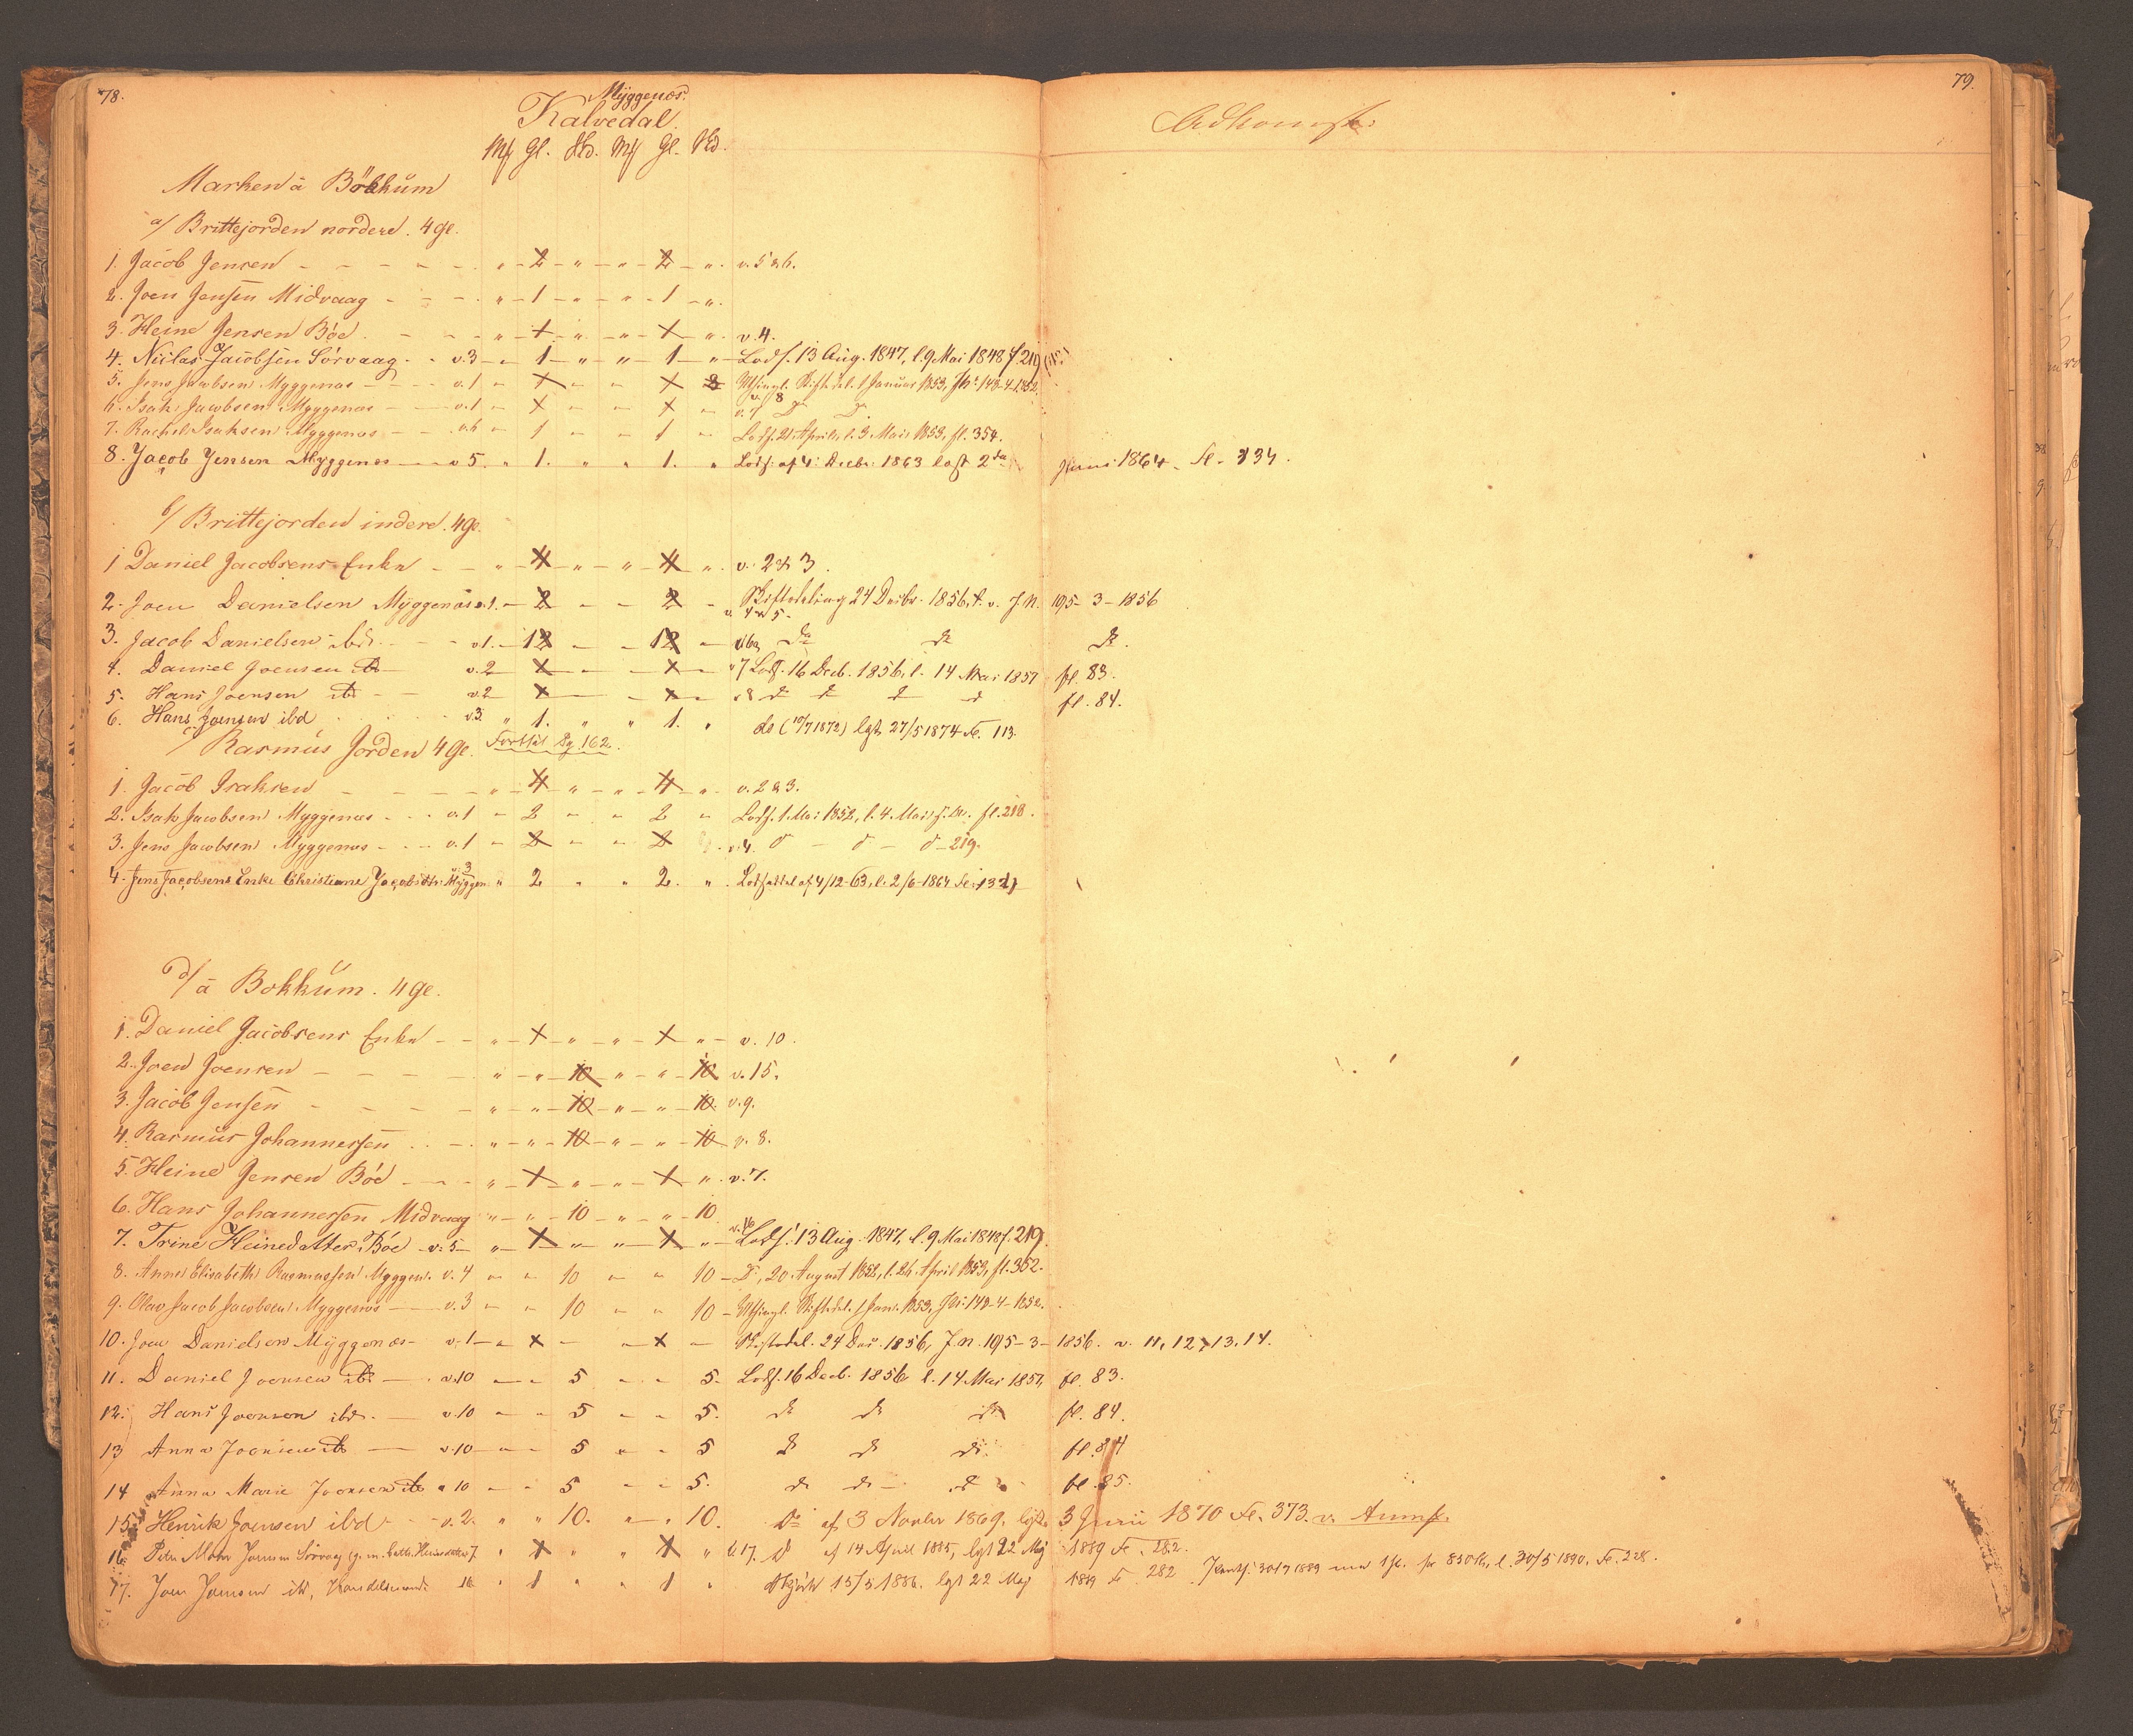 78.
Myggenæs.
Kalvedal.
79.
Adkomst:
Mk Gl. Sk. Mk Gl. Sk.
Marken a Bökkum
a/ Brittejorden nordere. 4 Gl.
1. Jacob Jensen - - - - - " - 2 - " - " - 2 - ". v. 5 & 6.
2. Joen Jensen Midvaag - - - " - 1 - " - " - 1 - ".
3. Heine Jensen Böe - - - " - 1 - " - " - 1 - " v. 4.
4. Niclas Jacobsen Sörvaag. v. 3 - " 1 " " 1 " Lods. 13 Aug. 1847, l. 9 Mai 1848 f. 219
5. Jens Jacobsen Myggenæs - - v. 1 - 1 - - 1 Skiftedel. 1 Januar 1853, 148-4-1852.
v. 8
6. Isak Jacobsen Myggenæs - v. 1 - 1 - - 1 - v. 7 Do Do
7. Rachel Isaksen Myggenæs - - v. 6 - 1 - - 1 - Lods. 21 April, l. 3 Mai 1853, fl. 354.
8. Jacob Jensen Myggenes - v 5. " 1. " " 1. " Lods: af 4: Decbr. 1863 læst 2den Juni 1864 - Fl. 134.
b/ Brittejorden indere. 4 Gl.
1 Daniel Jacobsens Enke - - " - 4 - " - " - 4 - ". v. 2 & 3.
2. Joen Danielsen Myggenæs v. 1. - 2 - - 2 - Skiftedeling 24 Decbr. 1856, J. N. 195 - 3 - 1856
v. 4 & 5.
3. Jacob Danielsen ibd. - - v 1. - 12 - - 12 - v. 6 do do do.
4. Daniel Joensen ib v. 2 1 - - 1 - v 7 Lods. 16 Decb. 1856, l. 14 Mai 1857 fl. 83.
5. Hans Joensen ib - v. 2 1 - - 1 - v 8 do do do do fl. 84.
6. Hans Joensen ibd v. 3. " 1. " " 1. " do (10/7 1872) lgst 27/5 1874 Fl. 113.
c/ Rasmus Jorden 4 Gl. Fortsat Pg 162.
1. Jacob Isaksen - - - - - " - 4 - " - " - 4 - ". v. 2 & 3.
2. Isak Jacobsen Myggenæs - - - v. 1 " 2 - - 2 " Lods. 1. Mai 1852, l. 4. Mai fl. 218.
3. Jens Jacobsen Myggenæs - - - v. 1 " 2 - - 2 v. 4. d - d - d - 219.
4. Jens Jacobsens Enke Christiane Jacobsdtr: Myggen. v 3 " 2 " " 2. ". Lodseddel af 4/12-63, l. 2/6-1864 Fl. 132
d/ a Bokkum. 4 Gl.
1. Daniel Jacobsens Enke - - " - 1 - " - " - 1 - " - v. 10.
2. Joen Joensen - - - - " - " - 10 - " - " - 10 v. 15.
3. Jacob Jensen - - - - " - " - 10 - " - " - 10. v. 9.
4. Rasmus Johannessen - - " - " - 10 - " - " - 10 v. 8.
5. Heine Jensen Böe - - - " - 1 - " - " - 1 - ". v. 7.
6. Hans Johannessen Midvaag " - " - 10 - " - " - 10.
7. Trine Heinedatter Böe - v. 5 - " - 1 - " - " - 1 - " v. 16 Lods. 13 Aug. 1847, l. 9 Mai 1848 f. 219.
8. Anne Elisabeth Rasmussen Myggen. v. 4 - - 10 - - 10 - Do, 20 August 1852, l. 26 April 1853, fl. 352.
9. Olav Jacob Jacobsen Myggenæs - v. 3 - - 10 - - 10 - Skiftedel. 1 Jan. 1853, 148-4-1852.
10. Joen Danielsen Myggenæs - v. 1 - - 1 - - 1 - Skiftedel. 24 Dec. 1856, J. n. 195-3-1856. v. 11, 12, 13, 14.
11. Daniel Joensen ib. - v. 10 - - 5 - - 5. Lods. 16 Decb. 1856 l. 14 Mai 1857, fl. 83.
12. Hans Joensen ibd. - v. 10 - - 5 - - 5. do do do fl. 84.
13 Anna Joensen ib - v. 10 - - 5 - - 5 do do do. fl. 84
14 Anna Marie Joensen ib v 10 - - 5 - - 5. do do - do fl. 85.
15. Henrik Joensen ibd - - v. 2. " " 10. " " 10. Do af 3 Novbr 1869, lgst. 3 Juni 1870 Fl. 373. v. Anmf.
16. Joensen Sörvaag 7. " 1 " " 1 " v. 17. D af 14 April 1885, lgst 22 Maj 1889 Fl. 282.
17. Joen Joensen ib, Handelsmand 16. " 1 " " 1 " Skjöde 15/5 1886. lgst 22 Maj 1889 Fl 282 30/7 1889 for 830 Kr, l. 30/5 1890. Fl. 228.